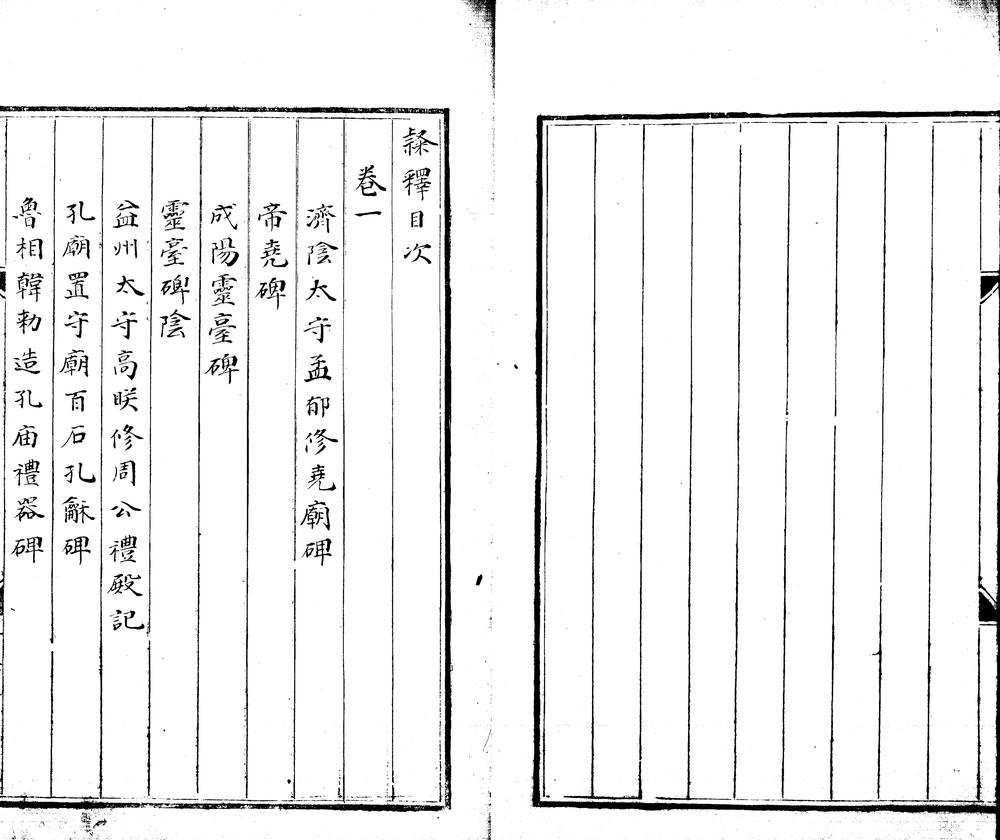 隸釋目次
卷一
濟陰太守孟郁修堯廟碑
帝堯碑
成陽靈臺碑
靈臺碑陰
益州太守高眹修周公禮殿記
孔廟置守廟百石孔龢碑
魯相韓勑造孔庙禮器碑